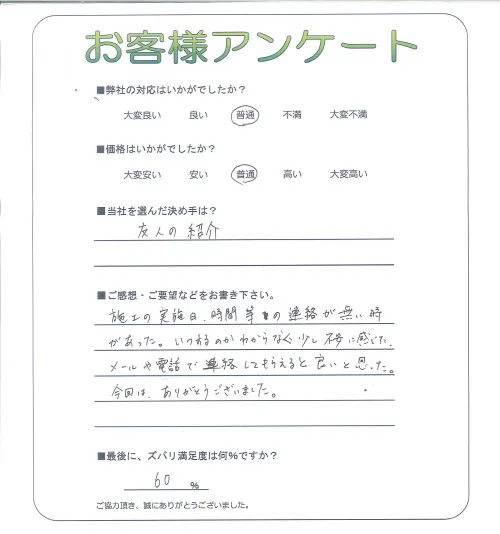 お客様アンケート
■弊社の対応はいかがでしたか？
大変良い 良い 普通 不満 大変不満
■価格はいかがでしたか？
大変安い 安い 普通 高い 大変高い
■当社を選んだ決め手は？
友人の紹介
■ご感想・ご要望などをお書き下さい。
施工の実施日、時間等の連絡が無い時
があった。いつ来るのかわからなく少し不安に感じた。
メールや電話で連絡してもらえると良いと思った。
今回は、ありがとうございました。
■最後に、ズバリ満足度は何％ですか？
60 ％
ご協力頂き、誠にありがとうございました。